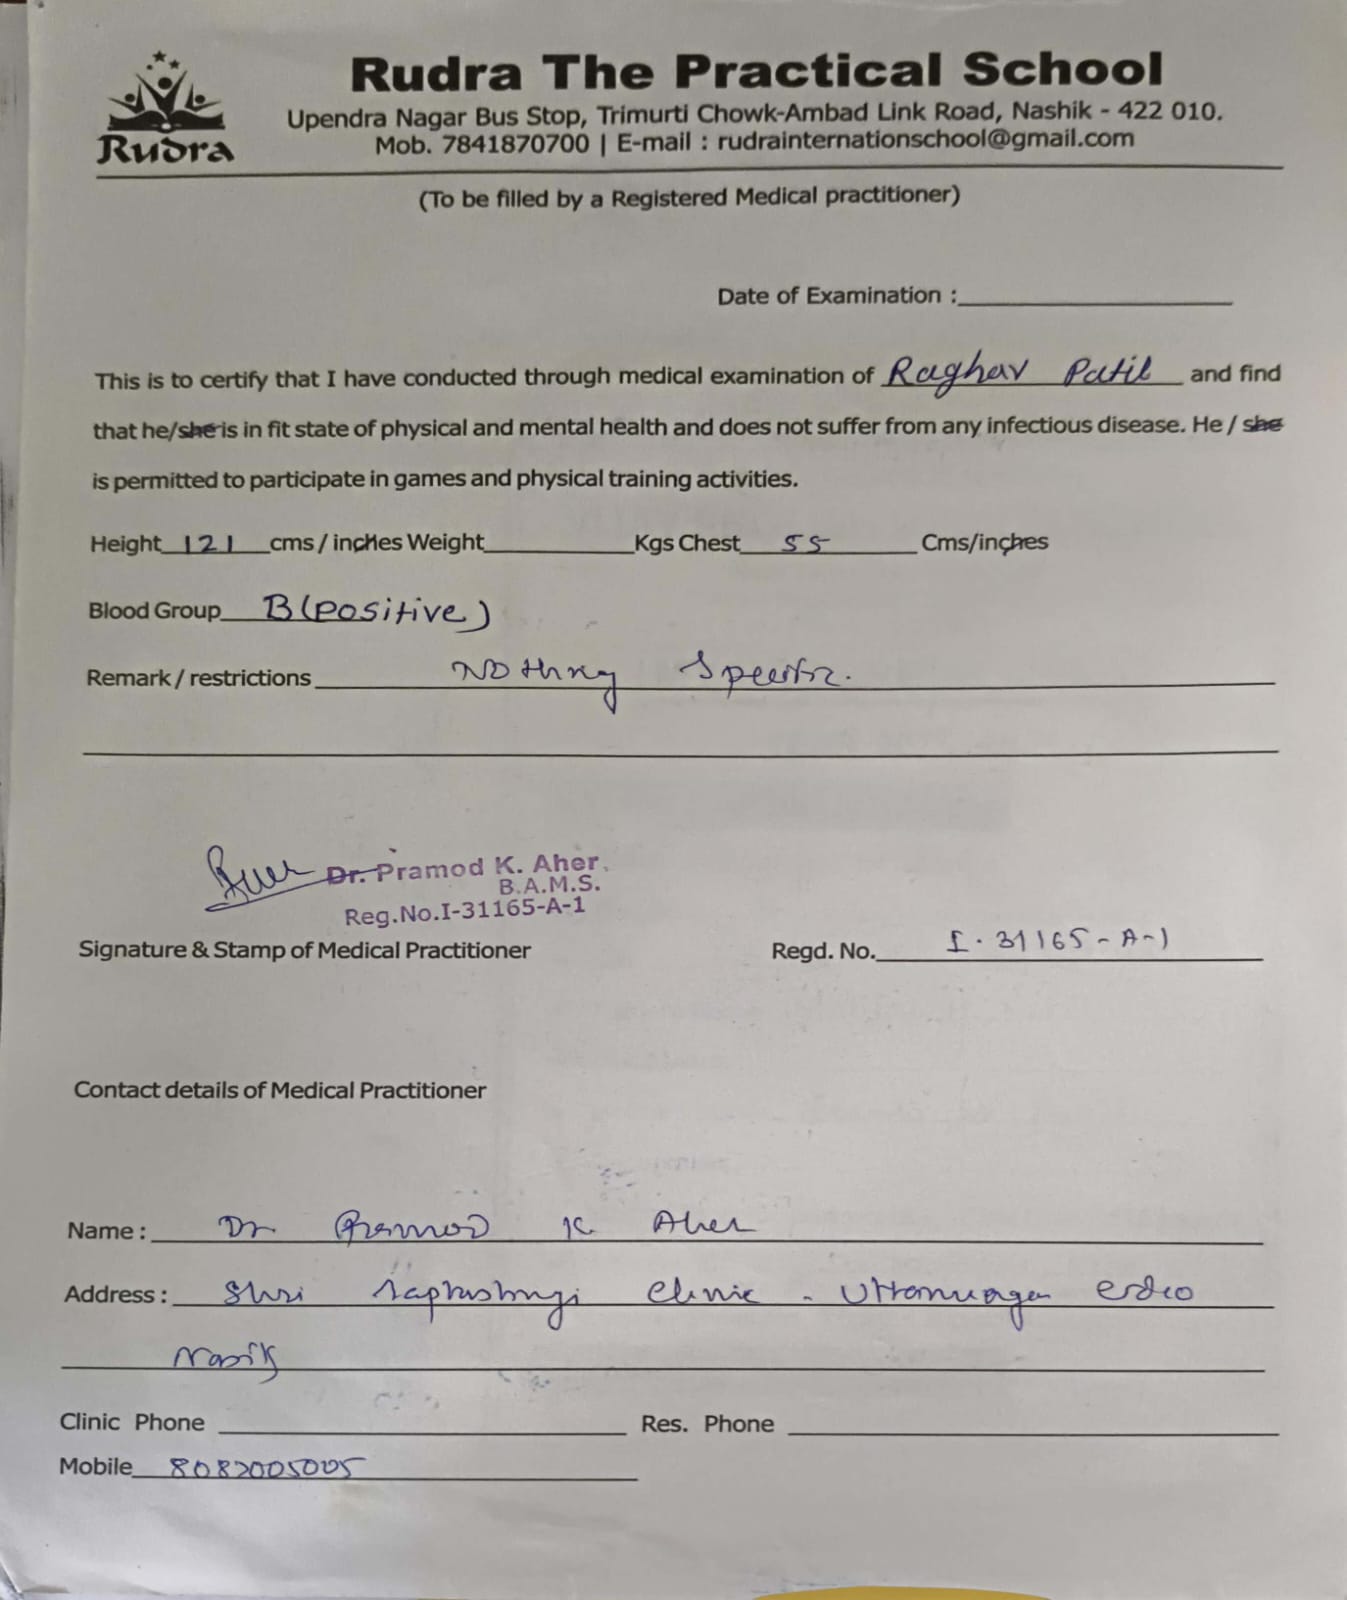 Rudra The Practical School
Upendra Nagar Bus Stop, Trimurti Chowk-Ambad Link Road, Nashik - 422 010.
Rudra
Mob. 7841870700 | E-mail : rudrainternationschool@gmail.com
(To be filled by a Registered Medical practitioner)
Date of Examination :
This is to certify that I have conducted through medical examination of Raghav Patil and find
that he/she is in fit state of physical and mental health and does not suffer from any infectious disease. He / she
is permitted to participate in games and physical training activities.
Height 121 cms / inches Weight Kgs Chest 55 Cms/inches
Blood Group B (Positive)
Remark / restrictions Nothing
Dr. Pramod K. Aher.
B.A.M.S.
Reg.No.I-31165-A-1
Signature & Stamp of Medical Practitioner Regd. No. I. 31165-A-1
Contact details of Medical Practitioner
Name : Dr Pramod K Aher
Address : Shri Clinic -
Nasik
Clinic Phone Res. Phone
Mobile 8082005005